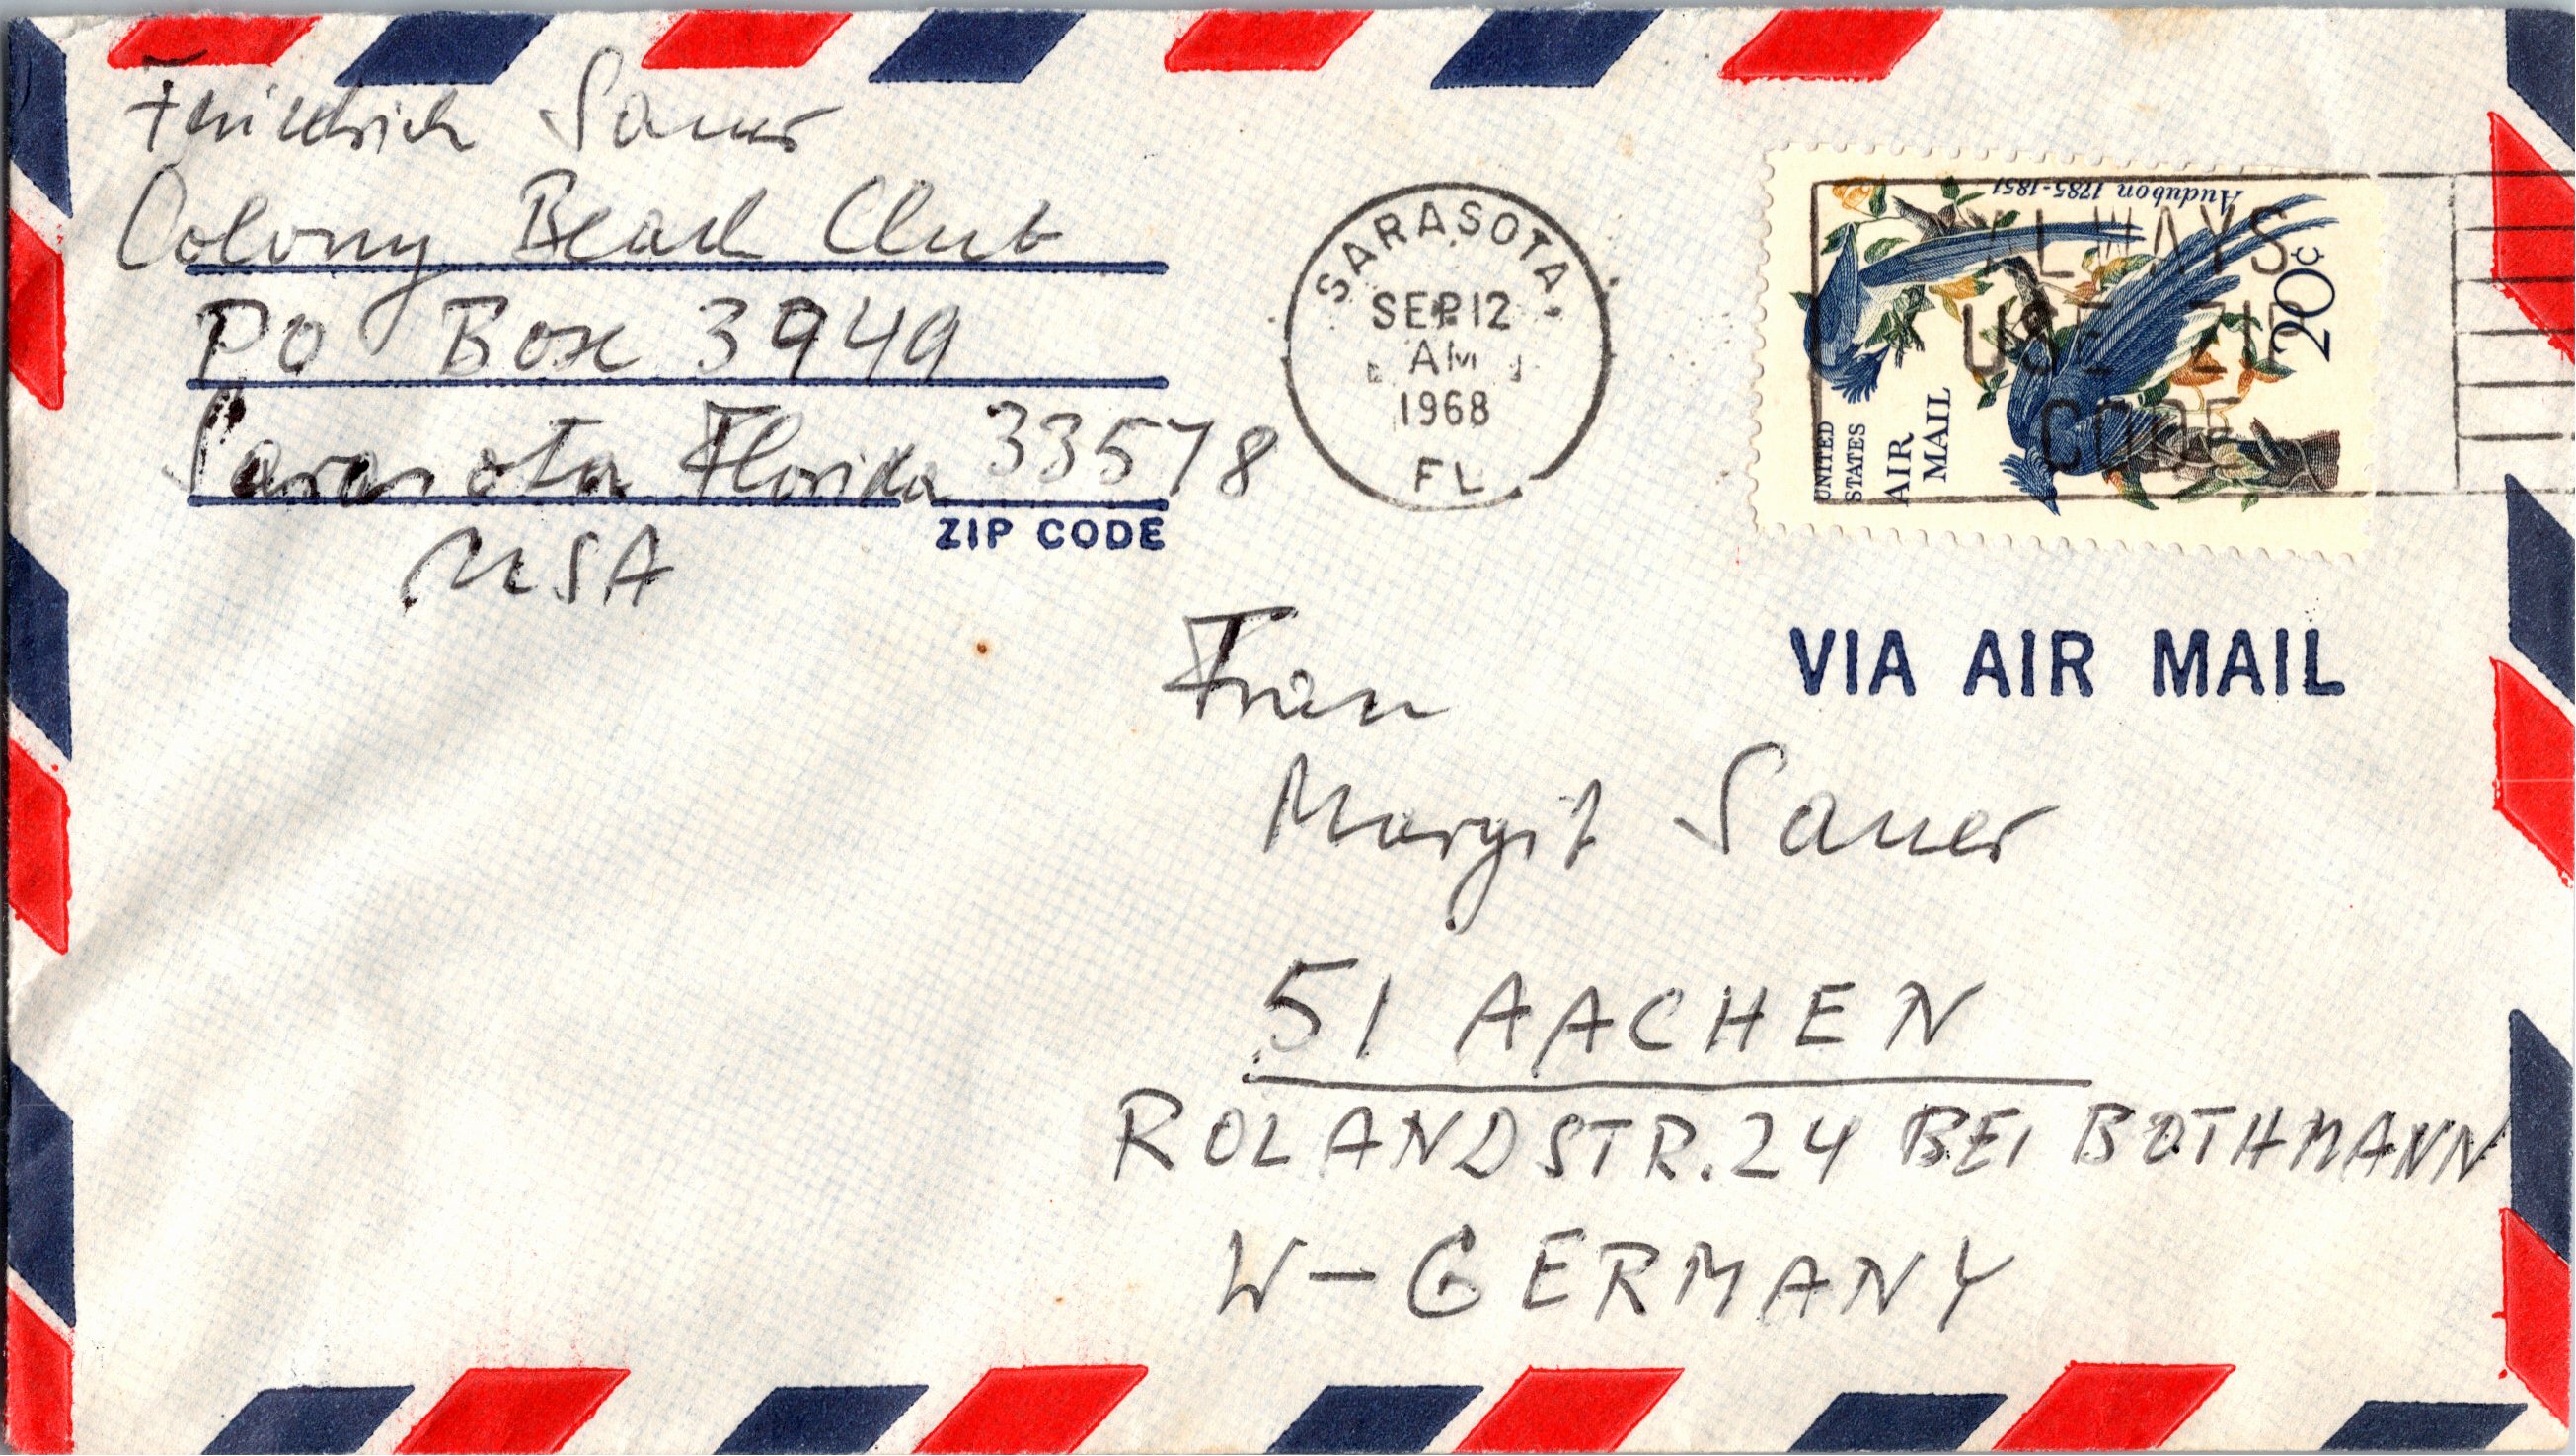 Friedrich Sauer
Colony Beach Club
PO Box 3949
Sarasota Florida 33578
ZIP CODE
USA
SARASOTA
SEP 12
AM
1968
FL
Audubon 1785-1851
20c
UNITED
STATES
AIR
MAIL
ALWAYS
USE ZIP
CODE
VIA AIR MAIL
Frau
Margit Sauer
51 AACHEN
ROLANDSTR. 24 BEI BOTHMANN
W-GERMANY